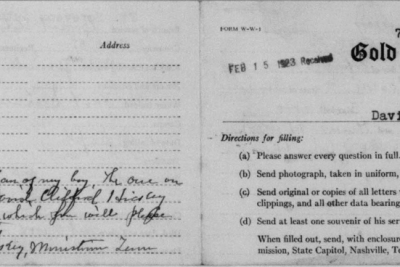 Address
of my boy, the one on
Clifford
which you will please
FORM W-W-1
FEB 15 1923 Received
7
Gold
Davi
Directions for filling:
(a) Please answer every question in full.
(b) Send photograph, taken in uniform,
(c) Send original or copies of all letters
clippings, and all other data bearing
(d) Send at least one souvenir of his ser
When filled out, send, with enclosure
mission, State Capitol, Nashville, Te